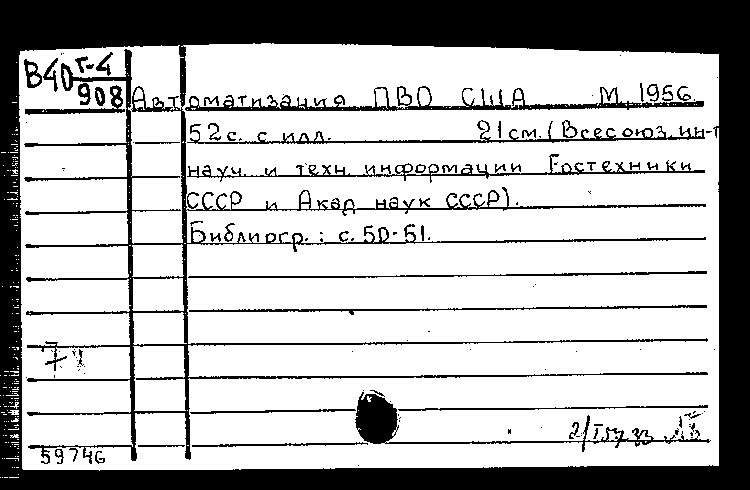 В40 Г-4
908
Автоматизация ПВО США М, 1956
52 с. с илл. 21 см. (Всесоюз. ин-т
науч. и техн. информации Гостехники
СССР и Акад наук СССР).
Библиогр.: с. 50-51.
59746